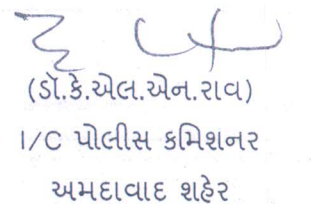 (ડૉ.કે.એલ.એન.રાવ)
I/C પોલીસ કમિશનર
અમદાવાદ શહેર